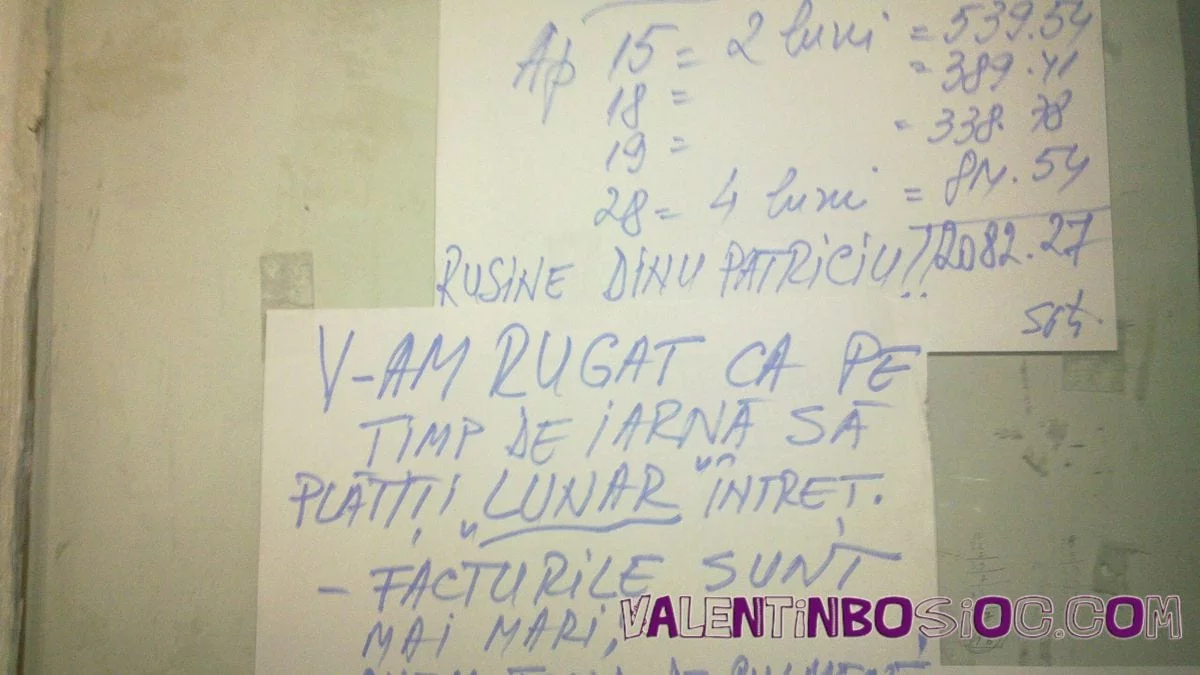 Ap 15 = 2 luni = 539.54
18 = = 389.41
19 = = 338.78
28 = 4 luni = 814.54
RUSINE DINU PATRICIU!! 2082.27
V-AM RUGAT CA PE
TIMP DE IARNĂ SĂ
PLĂTIȚI "LUNAR" ÎNTREȚ.
- FACTURILE SUNT
MAI MARI,
VALENTINBOSIOC.COM